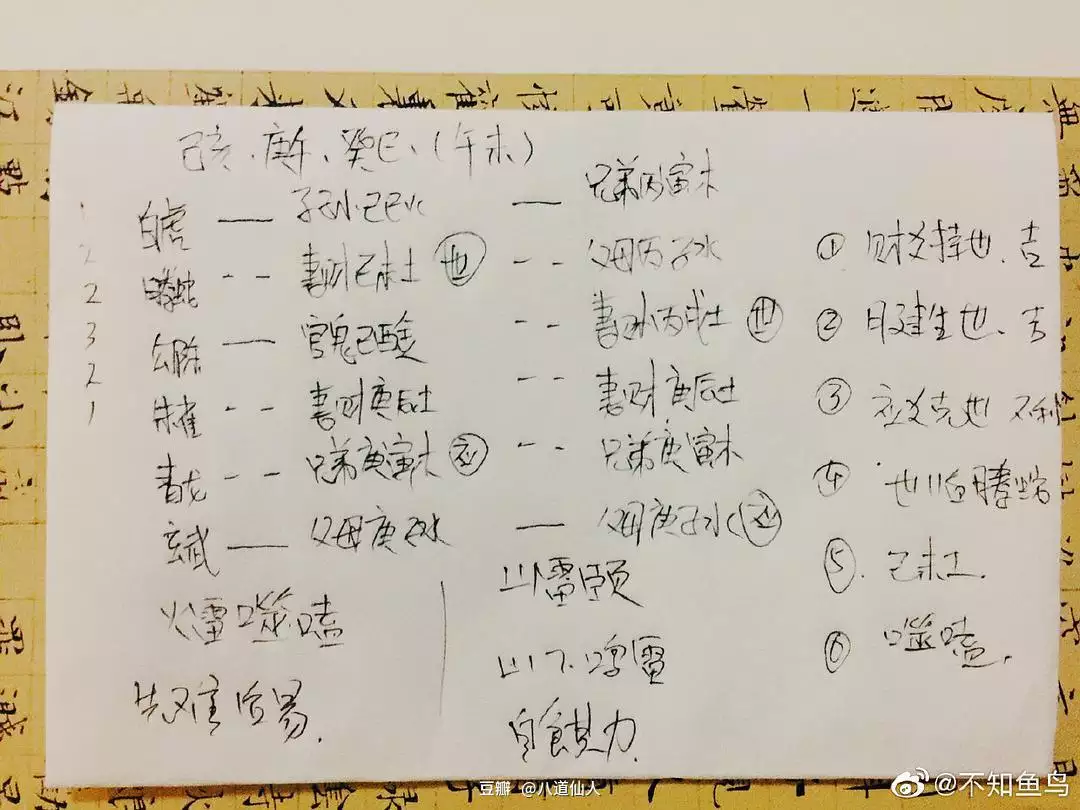 己亥、庚午、癸巳、(午未)
白虎 子孙己巳火 兄弟丙寅木
螣蛇 妻财己未土 世 父母丙子水
勾陈 官鬼己酉金 妻财丙戌土 世
朱雀 妻财庚辰土 妻财庚辰土
青龙 兄弟庚寅木 应 兄弟庚寅木
玄武 父母庚子水 父母庚子水 应
1
2
2
3
2
1
火雷噬嗑
先难 易.
山雷颐
山下 雷
自食其力.
① 财爻持世.吉
② 日建生世.吉
③ 应爻克世 不利
④ 世临螣蛇
⑤. 己未土.
⑥ 噬嗑.
豆瓣 @八道仙人
@不知鱼鸟